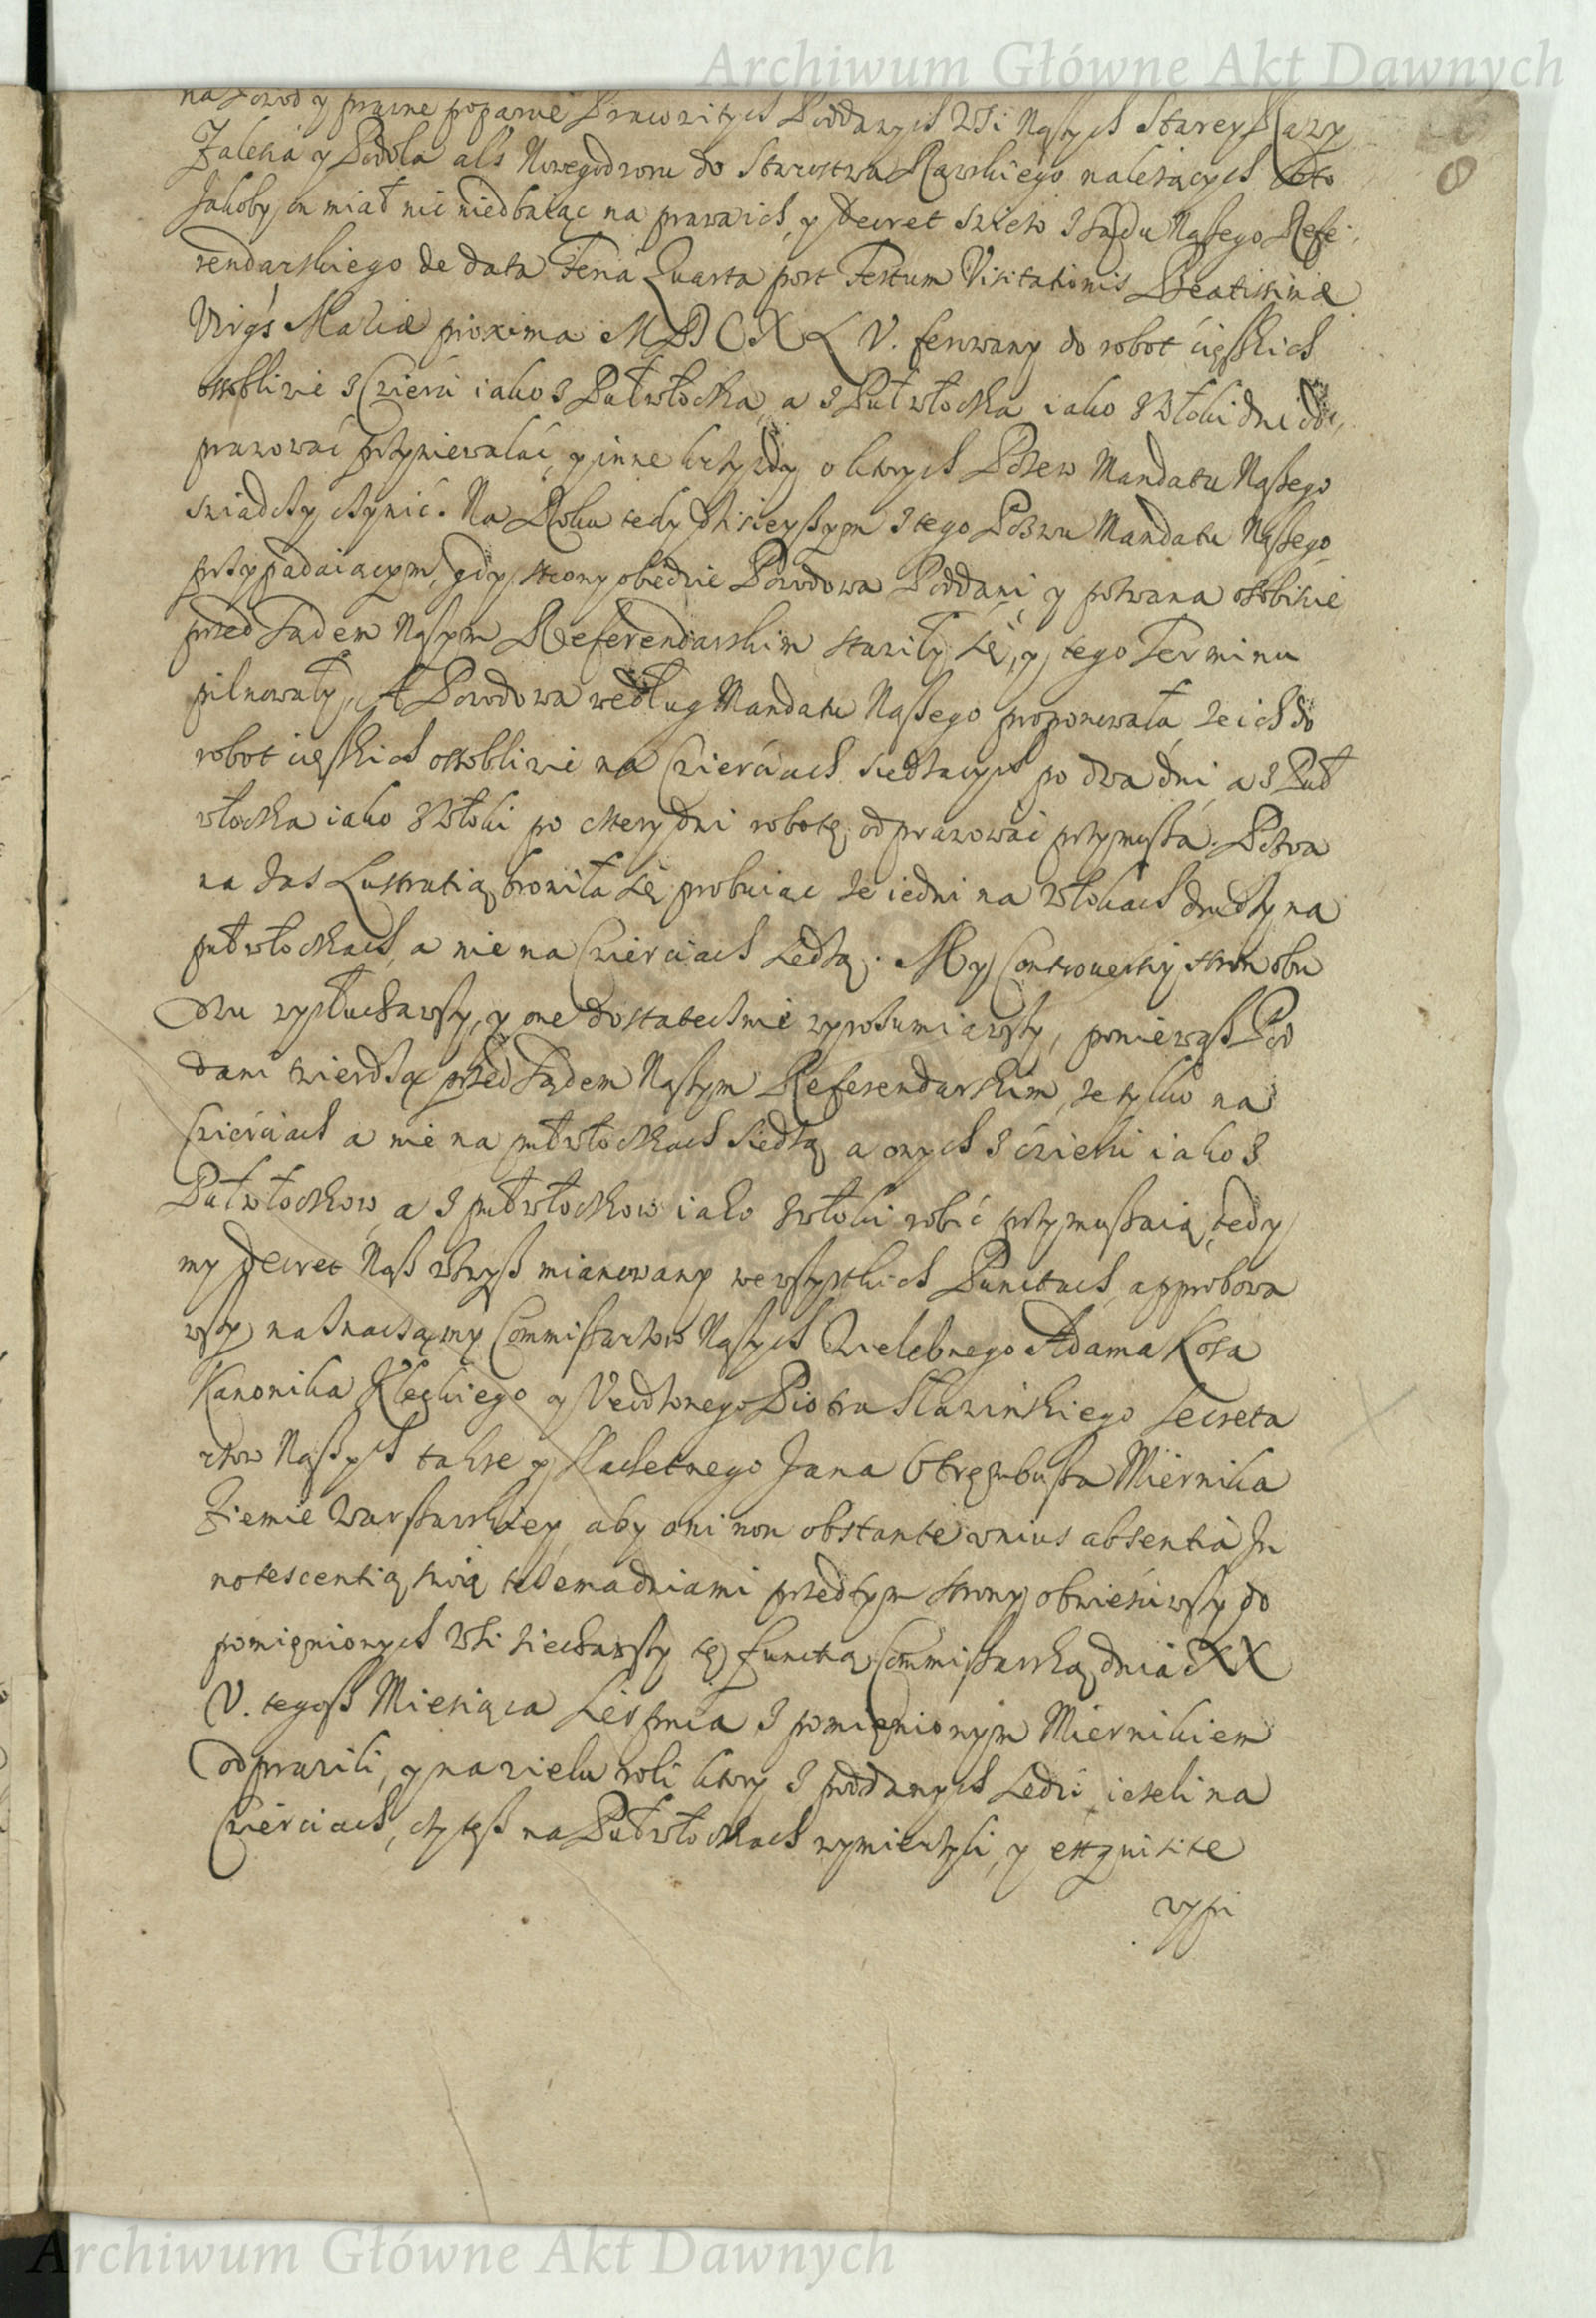 Archiwum Główne Akt Dawnych
8
na Powod y prawne poparcie Pracowitych Poddanych Wsi Naszych Starey Rawy
Zalesia y Podola als Nowegodworu do Starostwa Rawskiego należących oto
Jakoby on miał nic niedbaiąc na prawa ich, y Decret swiezo z Sądu Naszego Refe-
rendarskiego de data Feria Quarta post Festum Visitationis Beatissimæ
Virgis Mariæ proxima MDCXLV. ferowany do robot cięszkich
ossobliwie z Czierci iako z Pułwłocka, a z Pułwłocka iako z Włoki dni od-
prawować przyniewalać, y inne krzywdy o ktorych Pozew Mandatu Naszego
swiadczy czynić. Na Roku tedy dzisieyszym z tego Pozwu Mandatu Naszego
przypadaiącym, gdy strony obiedwie Powodowa Poddani, y pozwana osobiscie
przed Sądem Naszym Referendarskim stawiły się, y tego Terminu
pilnowały, A Powodowa według Mandatu Naszego proponowała, ze ich do
robot cięszkich ossobliwie na Czierciach siedzących po dwa dni a z Puł
włocka iako z Włoki po cztery dni robotę odprawować przymusza. Pozwa
na zas Lustratią broniła się probuiąc ze iedni na Włokach drudzy na
pułwłockach, a nie na Czierciach siedzą. My Controversiy stron obu
dwu wysłuchawszy, y one dostatecznie wyrozumiawszy, poniewasz Pod
dani twierdzą przed Sądem Naszym Referendarskim, ze tylko na
Czierciach a nie na pułwłockach siedzą a onych z czierci iako z
Pułwłockow, a z pułwłockow iako z włoki robić przymuszaią, tedy
my Decret Nasz wzwysz mianowany we wszystkich Punctach approbowa
wszy naznaczamy Commissarzow Naszych Wielebnego Adama Kosa
Kanonika Kłeckiego y Urodzonego Piotra Sławinskiego Secreta
rzow Naszych takze y Slachetnego Jana Obrąmbusza Miernika
Ziemie Warszawskiey, aby oni non obstante unius absentia In
notescentią swą 
 przedtym strony obwieściwszy do
pomięnionych Wsi ziechawszy tę functią Commissarską dnia XX
V. tegosz Miesiąca Sierpnia z pomięnionym Miernikiem
odprawili, y na wielu roli ktory z poddanych siedzi iezeli na
Czierciach, czy tesz na Pułwłockach wymierzyli, y exquisite
wypi
Archiwum Główne Akt Dawnych